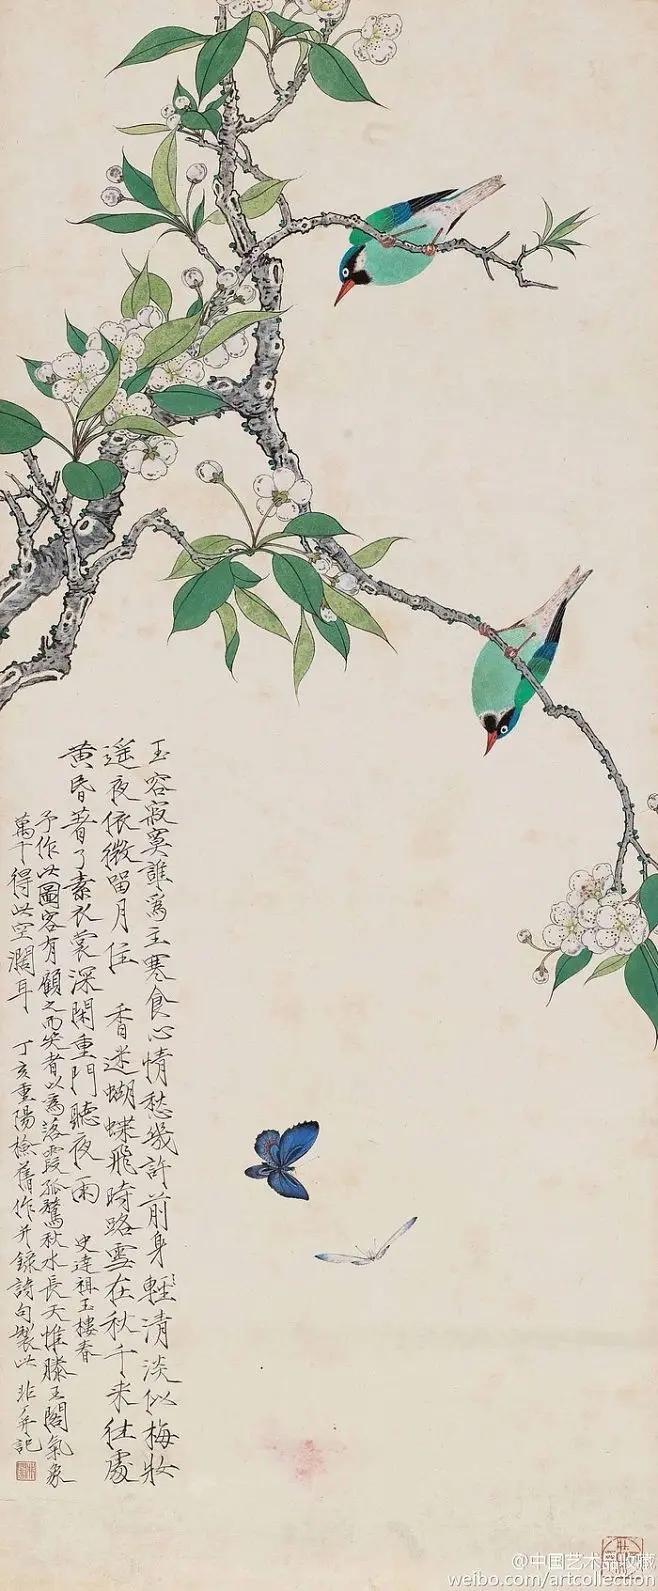 玉容寂寞誰爲主寒食心情愁幾許前身輕清淡似梅妝
遥夜依微留月住　香迷蝴蝶飛時路雪在秋千来往處
黄昬著了素衣裳深閑重門聽夜雨　史達祖玉樓春
予作此圖客有顧之而笑者以爲落霞孤鶩秋水長天惟滕王閣氣象
萬千得此空濶耳　丁亥重陽檢舊作并録詩句製此　非厂并記
@中国艺术品收藏
weibo.com/artcollection